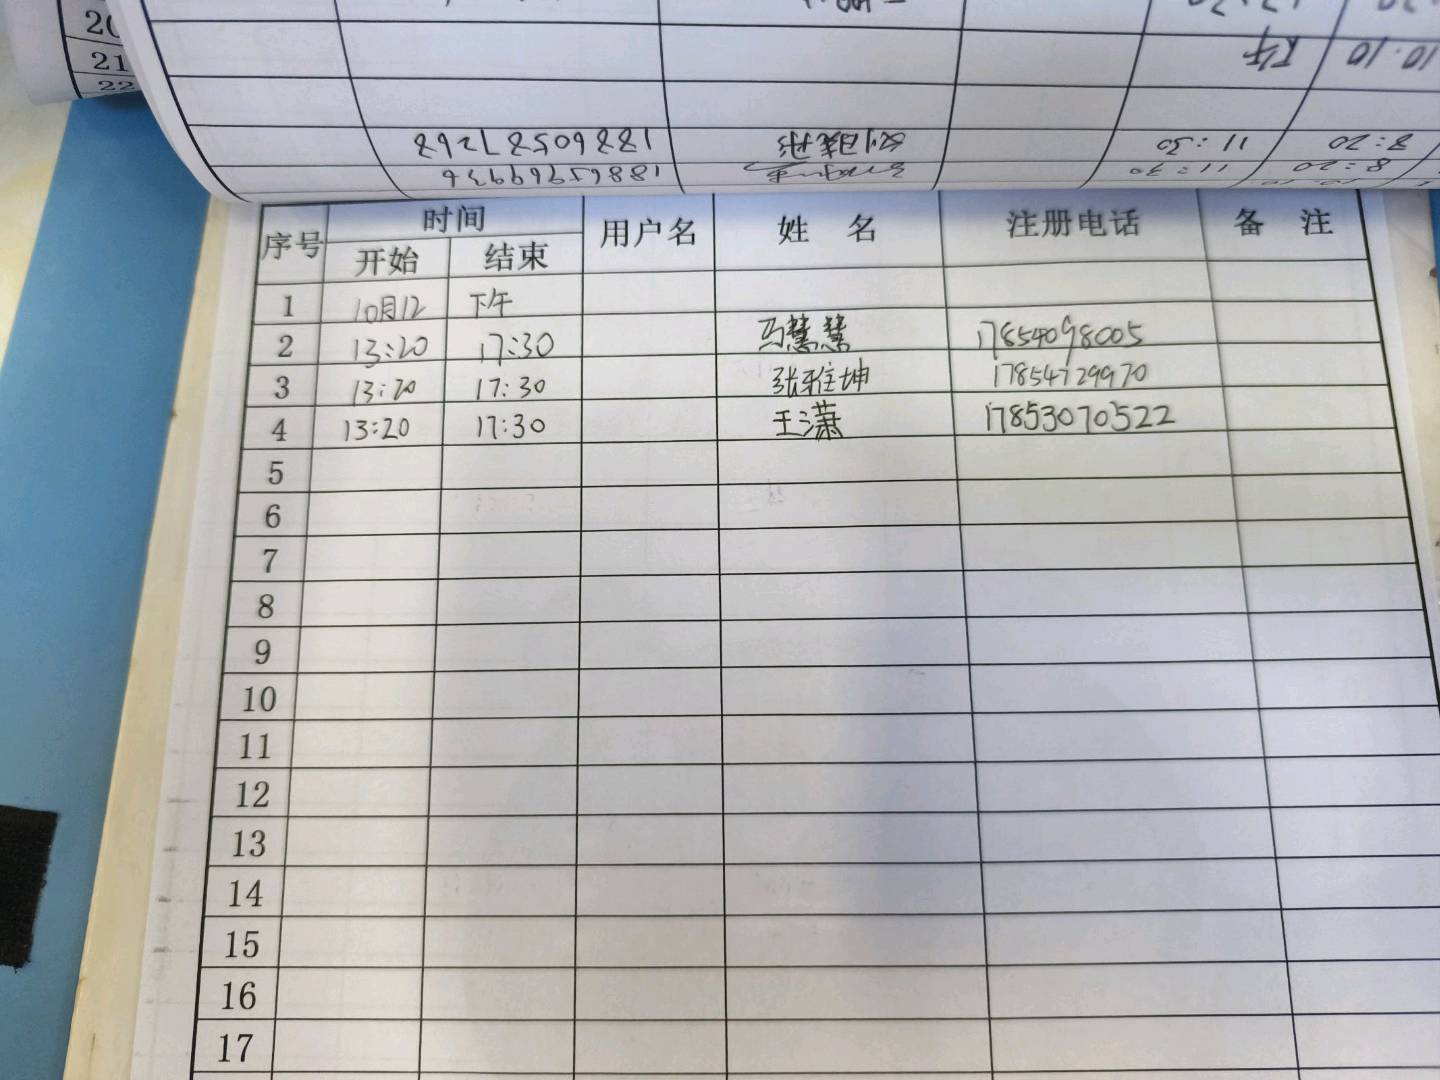 20
21
22
下午 10.10
18860587268 11:30 8:20
18865969936 11:30 8:20
序号 时间 用户名 姓 名 注册电话 备 注
开始 结束
1 10月12 下午
2 13:20 17:30 马慧慧 17854098005
3 13:20 17:30 张雅坤 17854729970
4 13:20 17:30 王潇 17853070522
5
6
7
8
9
10
11
12
13
14
15
16
17